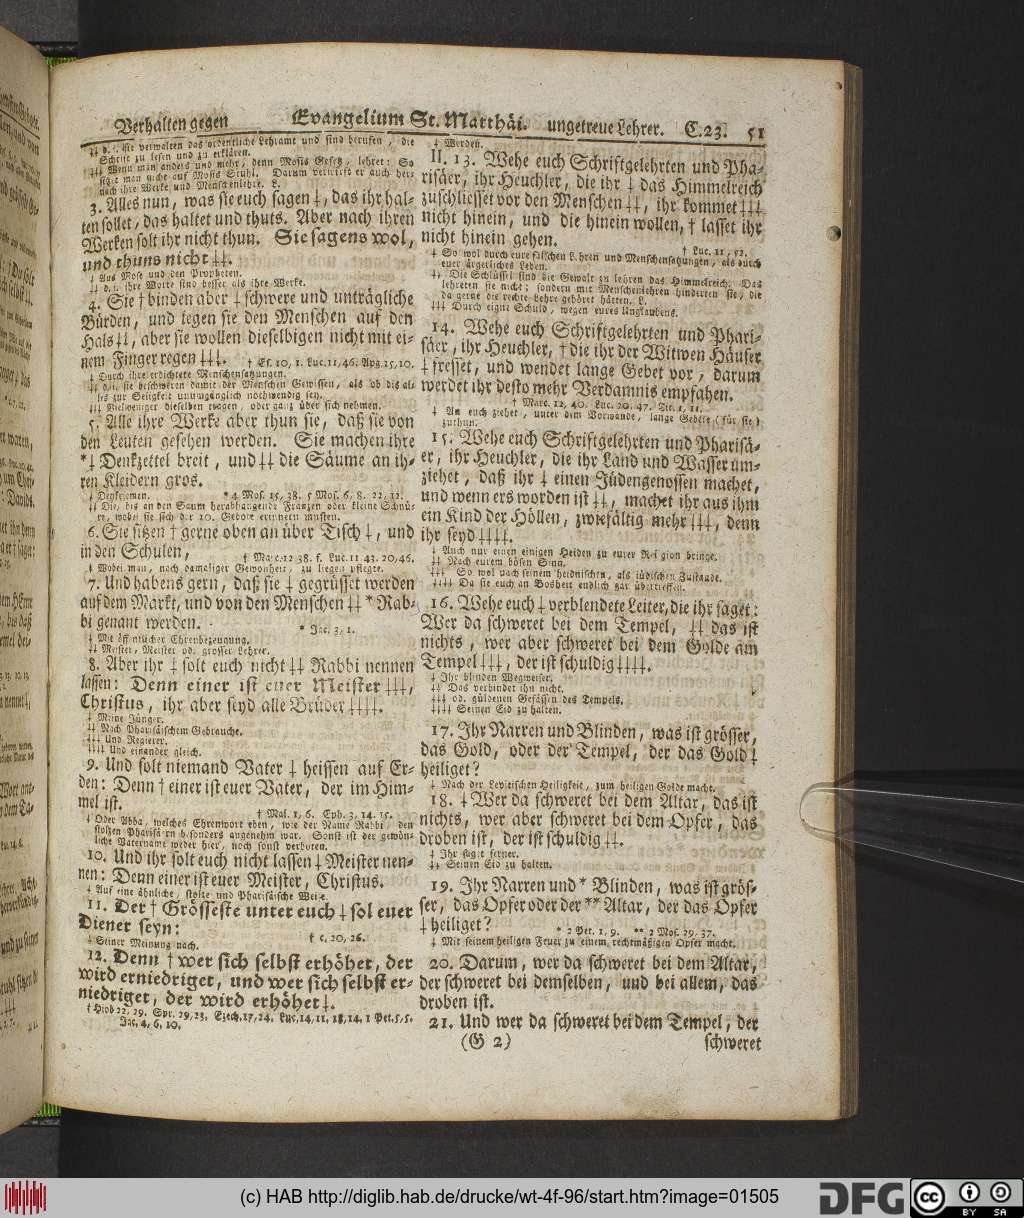 Verhalten gegen Evangelium St. Matthäi. ungetreue Lehrer. C.23. 51
‡‡ d. i. sie verwalten das ordentliche Lehramt und sind berufen, die
Schrift zu lesen und zu erklären.
‡‡‡ Wenn man anders und mehr, denn Mosis Gesetz, lehret: So
sitzt man nicht auf Mosis Stuhl. Darum verwirft er auch her-
nach ihre Werke und Menschenlehre. L.
3. Alles nun, was sie euch sagen ‡, das ihr hal-
ten sollet, das haltet und thuts. Aber nach ihren
Werken solt ihr nicht thun. Sie sagens wol,
und thuns nicht ‡‡.
‡ Aus Mose und den Propheten.
‡‡ d. i. ihre Worte sind besser als ihre Werke.
4. Sie † binden aber ‡ schwere und unträgliche
Bürden, und legen sie den Menschen auf den
Hals ‡‡, aber sie wollen dieselbigen nicht mit ei-
nem Finger regen ‡‡‡. † Es. 10, 1. Luc. 11, 46. Apg. 15, 10.
‡ Durch ihre erdichtete Menschensatzungen.
‡‡ d. i. sie beschweren damit der Menschen Gewissen, als ob dis al-
les zur Seligkeit unumgänglich nothwendig sey.
‡‡‡ Vielweniger dieselben tragen, oder ganz über sich nehmen.
5. Alle ihre Werke aber thun sie, daß sie von
den Leuten gesehen werden. Sie machen ihre
*‡ Denkzettel breit, und ‡‡ die Säume an ih-
ren Kleidern gros.
‡ Denkriemen. * 4 Mos. 15, 38. 5 Mos. 6, 8. 22, 12.
‡‡ Die, bis an den Saum herabhangende Franzen oder kleine Schnü-
re, wobei sie sich der 10. Gebote erinnern musten.
6. Sie sitzen † gerne oben an über Tisch ‡, und
in den Schulen, † Marc. 12 38. f. Luc. 11 43. 20, 46.
‡ Wobei man, nach damaliger Gewonheit, zu liegen pflegte.
7. Und habens gern, daß sie ‡ gegrüsset werden
auf dem Markt, und von den Menschen ‡‡ * Rab-
bi genant werden. * Jac. 3, 1.
‡ Mit öffentlicher Ehrenbezeugung.
‡‡ Meister, Meister od. grosser Lehrer.
8. Aber ihr ‡ solt euch nicht ‡‡ Rabbi nennen
lassen: Denn einer ist euer Meister ‡‡‡,
Christus, ihr aber seyd alle Brüder ‡‡‡‡.
‡ Meine Jünger.
‡‡ Nach Pharisäischem Gebrauche.
‡‡‡ Und Regierer.
‡‡‡‡ Und einander gleich.
9. Und solt niemand Vater ‡ heissen auf Er-
den: Denn † einer ist euer Vater, der im Him-
mel ist. † Mal. 1, 6. Eph. 3, 14. 15.
‡ Oder Abba, welches Ehrenwort eben, wie der Name Rabbi, den
stolzen Pharisäern besonders angenehm war. Sonst ist der gewön-
liche Vatername weder hier, noch sonst verboten.
10. Und ihr solt euch nicht lassen ‡ Meister nen-
nen: Denn einer ist euer Meister, Christus.
‡ Auf eine ähnliche, stolze und Pharisäische Weise.
11. Der † Grösseste unter euch ‡ sol euer
Diener seyn: † c. 20, 26.
‡ Seiner Meinung nach.
12. Denn † wer sich selbst erhöhet, der
wird erniedriget, und wer sich selbst er-
niedriget, der wird erhöhet ‡.
† Hiob 22, 29. Spr. 29, 23. Ezech. 17, 24. Luc. 14, 11. 18, 14. 1 Pet. 5, 5.
Jac. 4, 6. 10.
‡ Werden.
II. 13. Wehe euch Schriftgelehrten und Pha-
risäer, ihr Heuchler, die ihr ‡ das Himmelreich
zuschliesset vor den Menschen ‡‡, ihr kommet ‡‡‡
nicht hinein, und die hinein wollen, † lasset ihr
nicht hinein gehen. † Luc. 11, 52.
‡ So wol durch eure falschen Lehren und Menschensatzungen, als durch
euer ärgerliches Leben.
‡‡ Die Schlüssel sind die Gewalt zu lehren das Himmelreich: Das
lehreten sie nicht; sondern mit Menschenlehren hinderten sie, die
da gerne die rechte Lehre gehöret hätten. L.
‡‡‡ Durch eigne Schuld, wegen eures Unglaubens.
14. Wehe euch Schriftgelehrten und Phari-
säer, ihr Heuchler, † die ihr der Witwen Häuser
‡ fresset, und wendet lange Gebet vor, darum
werdet ihr desto mehr Verdamnis empfahen.
† Marc. 12, 40. Luc. 20, 47. Tit. 1, 11.
‡ An euch ziehet, unter dem Vorwande, lange Gebete (für sie)
zuthun.
15. Wehe euch Schriftgelehrten und Pharisä-
er, ihr Heuchler, die ihr Land und Wasser um-
ziehet, daß ihr ‡ einen Jüdengenossen machet,
und wenn ers worden ist ‡‡, machet ihr aus ihm
ein Kind der Höllen, zwiefältig mehr ‡‡‡, denn
ihr seyd ‡‡‡‡.
‡ Auch nur einen einigen Heiden zu eurer Religion bringe.
‡‡ Nach eurem bösen Sinn.
‡‡‡ So wol nach seinem heidnischen, als jüdischen Zustande.
‡‡‡‡ Da sie euch an Bosheit endlich gar übertreffen.
16. Wehe euch ‡ verblendete Leiter, die ihr saget:
Wer da schweret bei dem Tempel, ‡‡ das ist
nichts, wer aber schweret bei dem Golde am
Tempel ‡‡‡, der ist schuldig ‡‡‡‡.
‡ Ihr blinden Wegweiser.
‡‡ Das verbindet ihn nicht.
‡‡‡ od. güldenen Gefässen des Tempels.
‡‡‡‡ Seinen Eid zu halten.
17. Ihr Narren und Blinden, was ist grösser,
das Gold, oder der Tempel, der das Gold ‡
heiliget?
‡ Nach der Levitischen Heiligkeit, zum heiligen Golde macht.
18. ‡ Wer da schweret bei dem Altar, das ist
nichts, wer aber schweret bei dem Opfer, das
droben ist, der ist schuldig ‡‡.
‡ Ihr saget ferner.
‡‡ Seinen Eid zu halten.
19. Ihr Narren und * Blinden, was ist grös-
ser, das Opfer oder der ** Altar, der das Opfer
‡ heiliget? * 2 Pet. 1, 9. ** 2 Mos. 29, 37.
‡ Mit seinem heiligen Feuer zu einem rechtmäßigen Opfer macht.
20. Darum, wer da schweret bei dem Altar,
der schweret bei demselben, und bei allem, das
droben ist.
21. Und wer da schweret bei dem Tempel, der
(G 2) schweret
(c) HAB http://diglib.hab.de/drucke/wt-4f-96/start.htm?image=01505
DFG cc BY SA